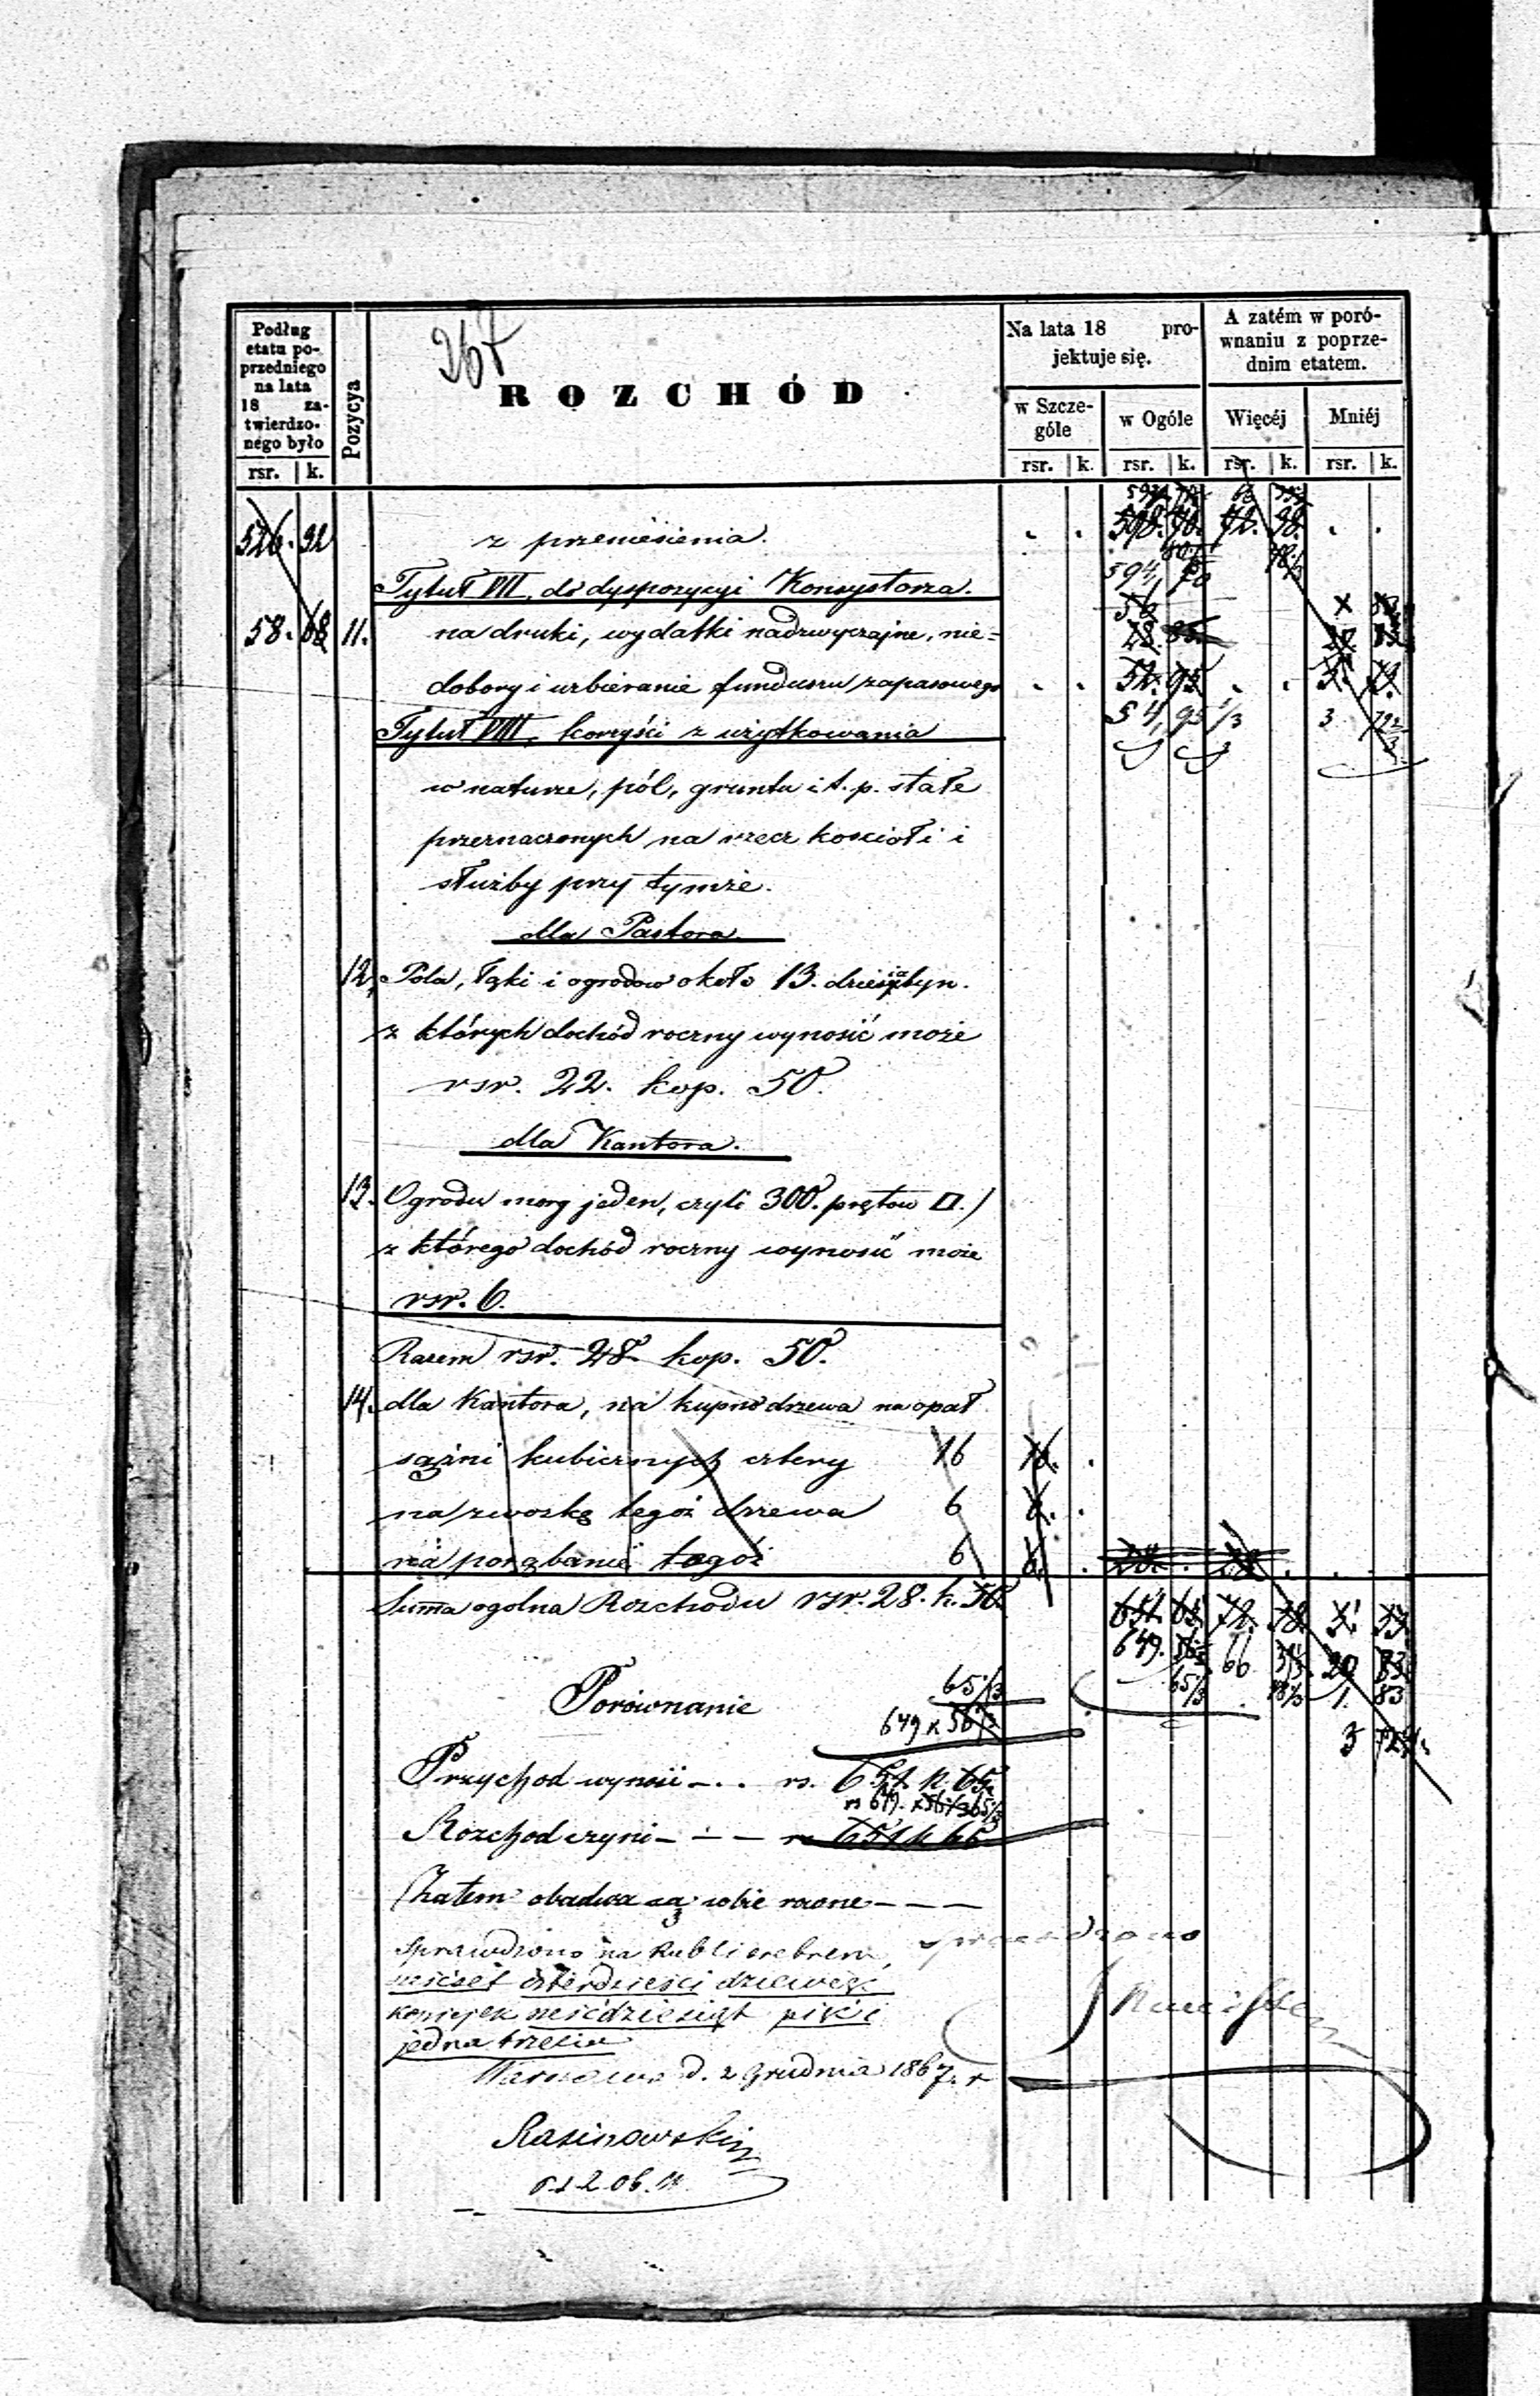 267
ROZCHÓD
Podług etatu po-
przedniego
na lata
18 za-
twierdzo-
nego było
rsr. k.
Pozycya
Na lata 18 pro-
jektuje się.
w Szcze-
góle
w Ogóle
rsr. k. rsr. k.
A zatém w poró-
wnaniu z poprze-
dnim etatem.
Więcéj Mniéj
rsr. k. rsr. k.
526. 92 z przeniesienia. 598. 70. 72. 98.
594,
Tytuł VII, do dyspozycyi Konsystorza.
58. 68 11. na druki, wydatki nadzwyczajne, nie=
dobory i uzbieranie funduszu zapasowego
54, 95 1/3 3
Tytuł VIII, korzyści z użytkowania
w naturze, pól, gruntu i t. p. stałe
przeznaczonych na rzecz kościoła i
służby przy tymże.
dla Pastora.
12, Pola, łąki i ogrodow około 13. dziesiatyn.
z których dochód roczny wynosić może
rsr. 22. kop. 50.
dla Kantora.
13. Ogrodu morg jeden, czyli 300. prętow □.)
z którego dochód roczny wynosić może
rsr. 6.
Razem rsr. 28 kop. 50.
14. dla Kantora, na kupno drzewa na opał
sążni kubicznych cztery 16 16.
na zwozkę tegoż drzewa 6 6.
na porąbanie tegoż 6 6. 28. 28.
Summa ogolna Rozchodu rsr. 28. k. 50
649. 66 20 83
65 1/3 1. 83
3
Porównanie
65 1/3
649 k 56 1/3
Przychod wynosi — . . rs. 651. k. 65.
rs 649. k 56 1/3 65 1/3
Rozchod czyni — — — rs 651 k 65
Zatem obadwa są sobie rowne — — —
Sprawdzono na Rubli srebrem,
sześćset czterdzieści dziewięć
kopiejek sześćdziesiąt pięć i
jedna trzecia
Warszawa d. 2 Grudnia 1867. r
Rasinowski
sprawdzono